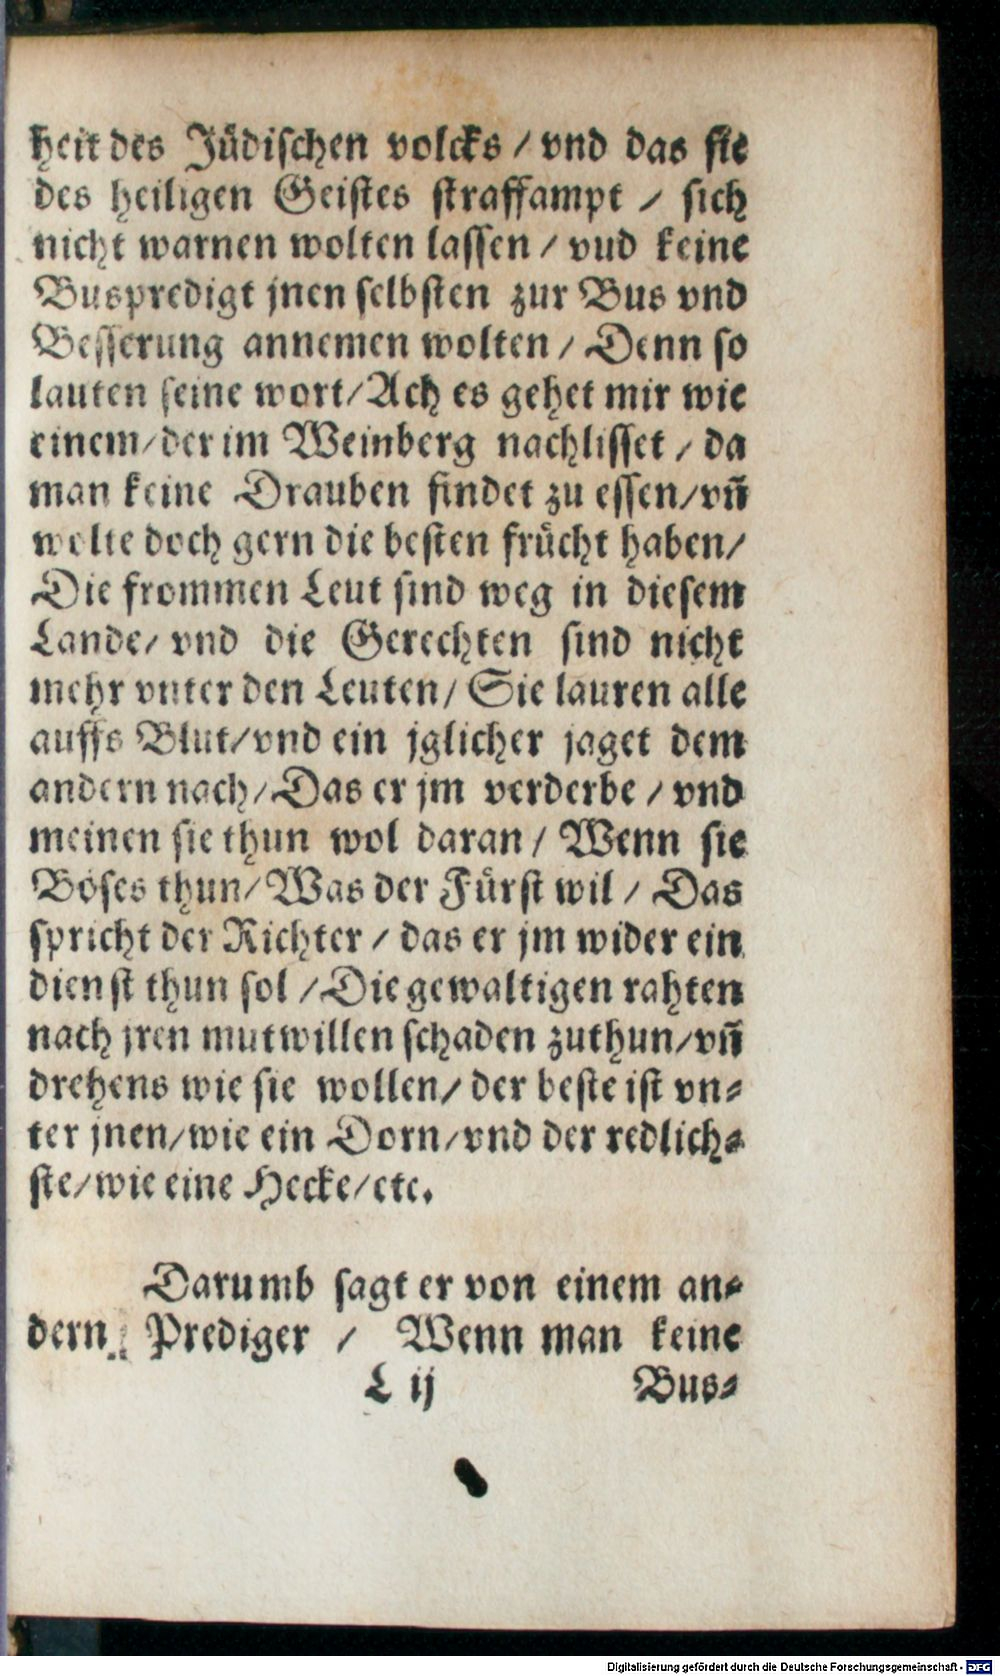 heit des Jüdischen volcks / vnd das sie
des heiligen Geistes straffampt / sich
nicht warnen wolten lassen / vud keine
Buspredigt jnen selbsten zur Bus vnd
Besserung annemen wolten / Denn so
lauten seine wort / Ach es gehet mir wie
einem / der im Weinberg nachlisset / da
man keine Drauben findet zu essen / vñ
wolte doch gern die besten frücht haben /
Die frommen Leut sind weg in diesem
Lande / vnd die Gerechten sind nicht
mehr vnter den Leuten / Sie lauren alle
auffs Blut / vnd ein jglicher jaget dem
andern nach / Das er jm verderbe / vnd
meinen sie thun wol daran / Wenn sie
Böses thun / Was der Fürst wil / Das
spricht der Richter / das er jm wider ein
dienst thun sol / Die gewaltigen rahten
nach jren mutwillen schaden zuthun / vñ
drehens wie sie wollen / der beste ist vn-
ter jnen / wie ein Dorn / vnd der redlich-
ste / wie eine Hecke / etc.
Darumb sagt er von einem an-
dern Prediger / Wenn man keine
L ij Bus-
Digitalisierung gefördert durch die Deutsche Forschungsgemeinschaft - DFG